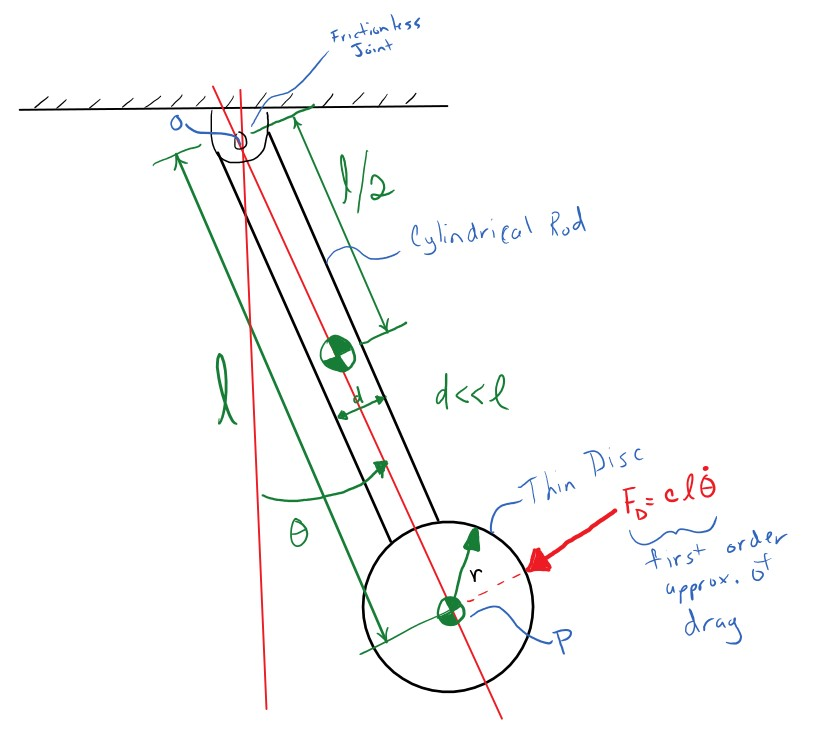 Frictionless
Joint
O
l/2
Cylindrical Rod
l
d
d<<l
Thin Disc
F_D = clθ̇
first order
approx. of
drag
θ
r
P